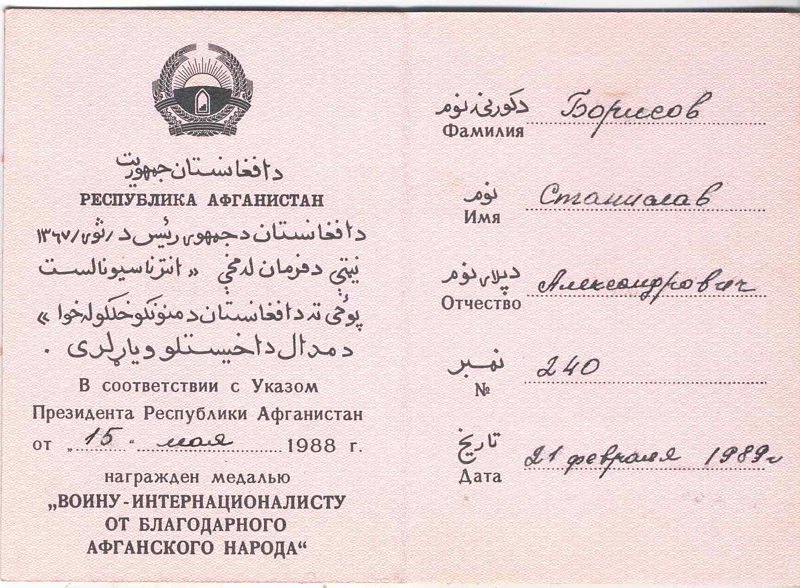 د افغانستان جمهوریت
РЕСПУБЛИКА АФГАНИСТАН
د افغانستان د جمهوری رئیس د /ثور/۱۳۶۷
نیټې د فرمان له مخې « انترناسیونالست
پوځی ته د افغانستان د منونکو خلکو له خوا »
د مدال د اخیستلو ویاړ لری .
В соответствии с Указом
Президента Республики Афганистан
от „15“ мая 1988 г.
награжден медалью
„ВОИНУ-ИНТЕРНАЦИОНАЛИСТУ
ОТ БЛАГОДАРНОГО
АФГАНСКОГО НАРОДА“
د کورنۍ نوم Борисов
Фамилия
نوم Станислав
Имя
د پلار نوم Александрович
Отчество
نمبر 240
№
تاریخ 21 февраля 1989 г
Дата